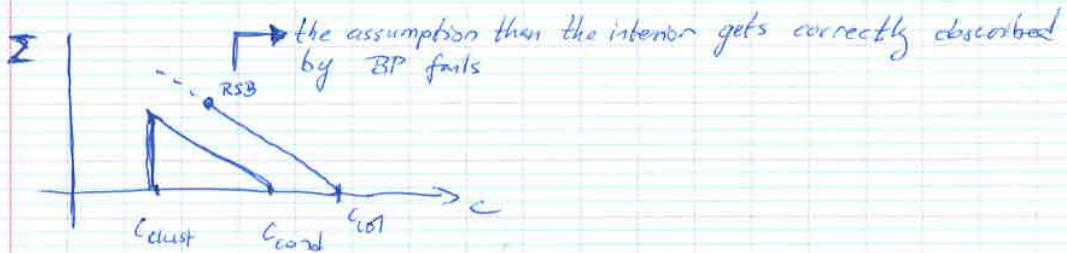 Σ
the assumption than the interior gets correctly described
by BP fails
RSB
c
C_clust C_cond C_col